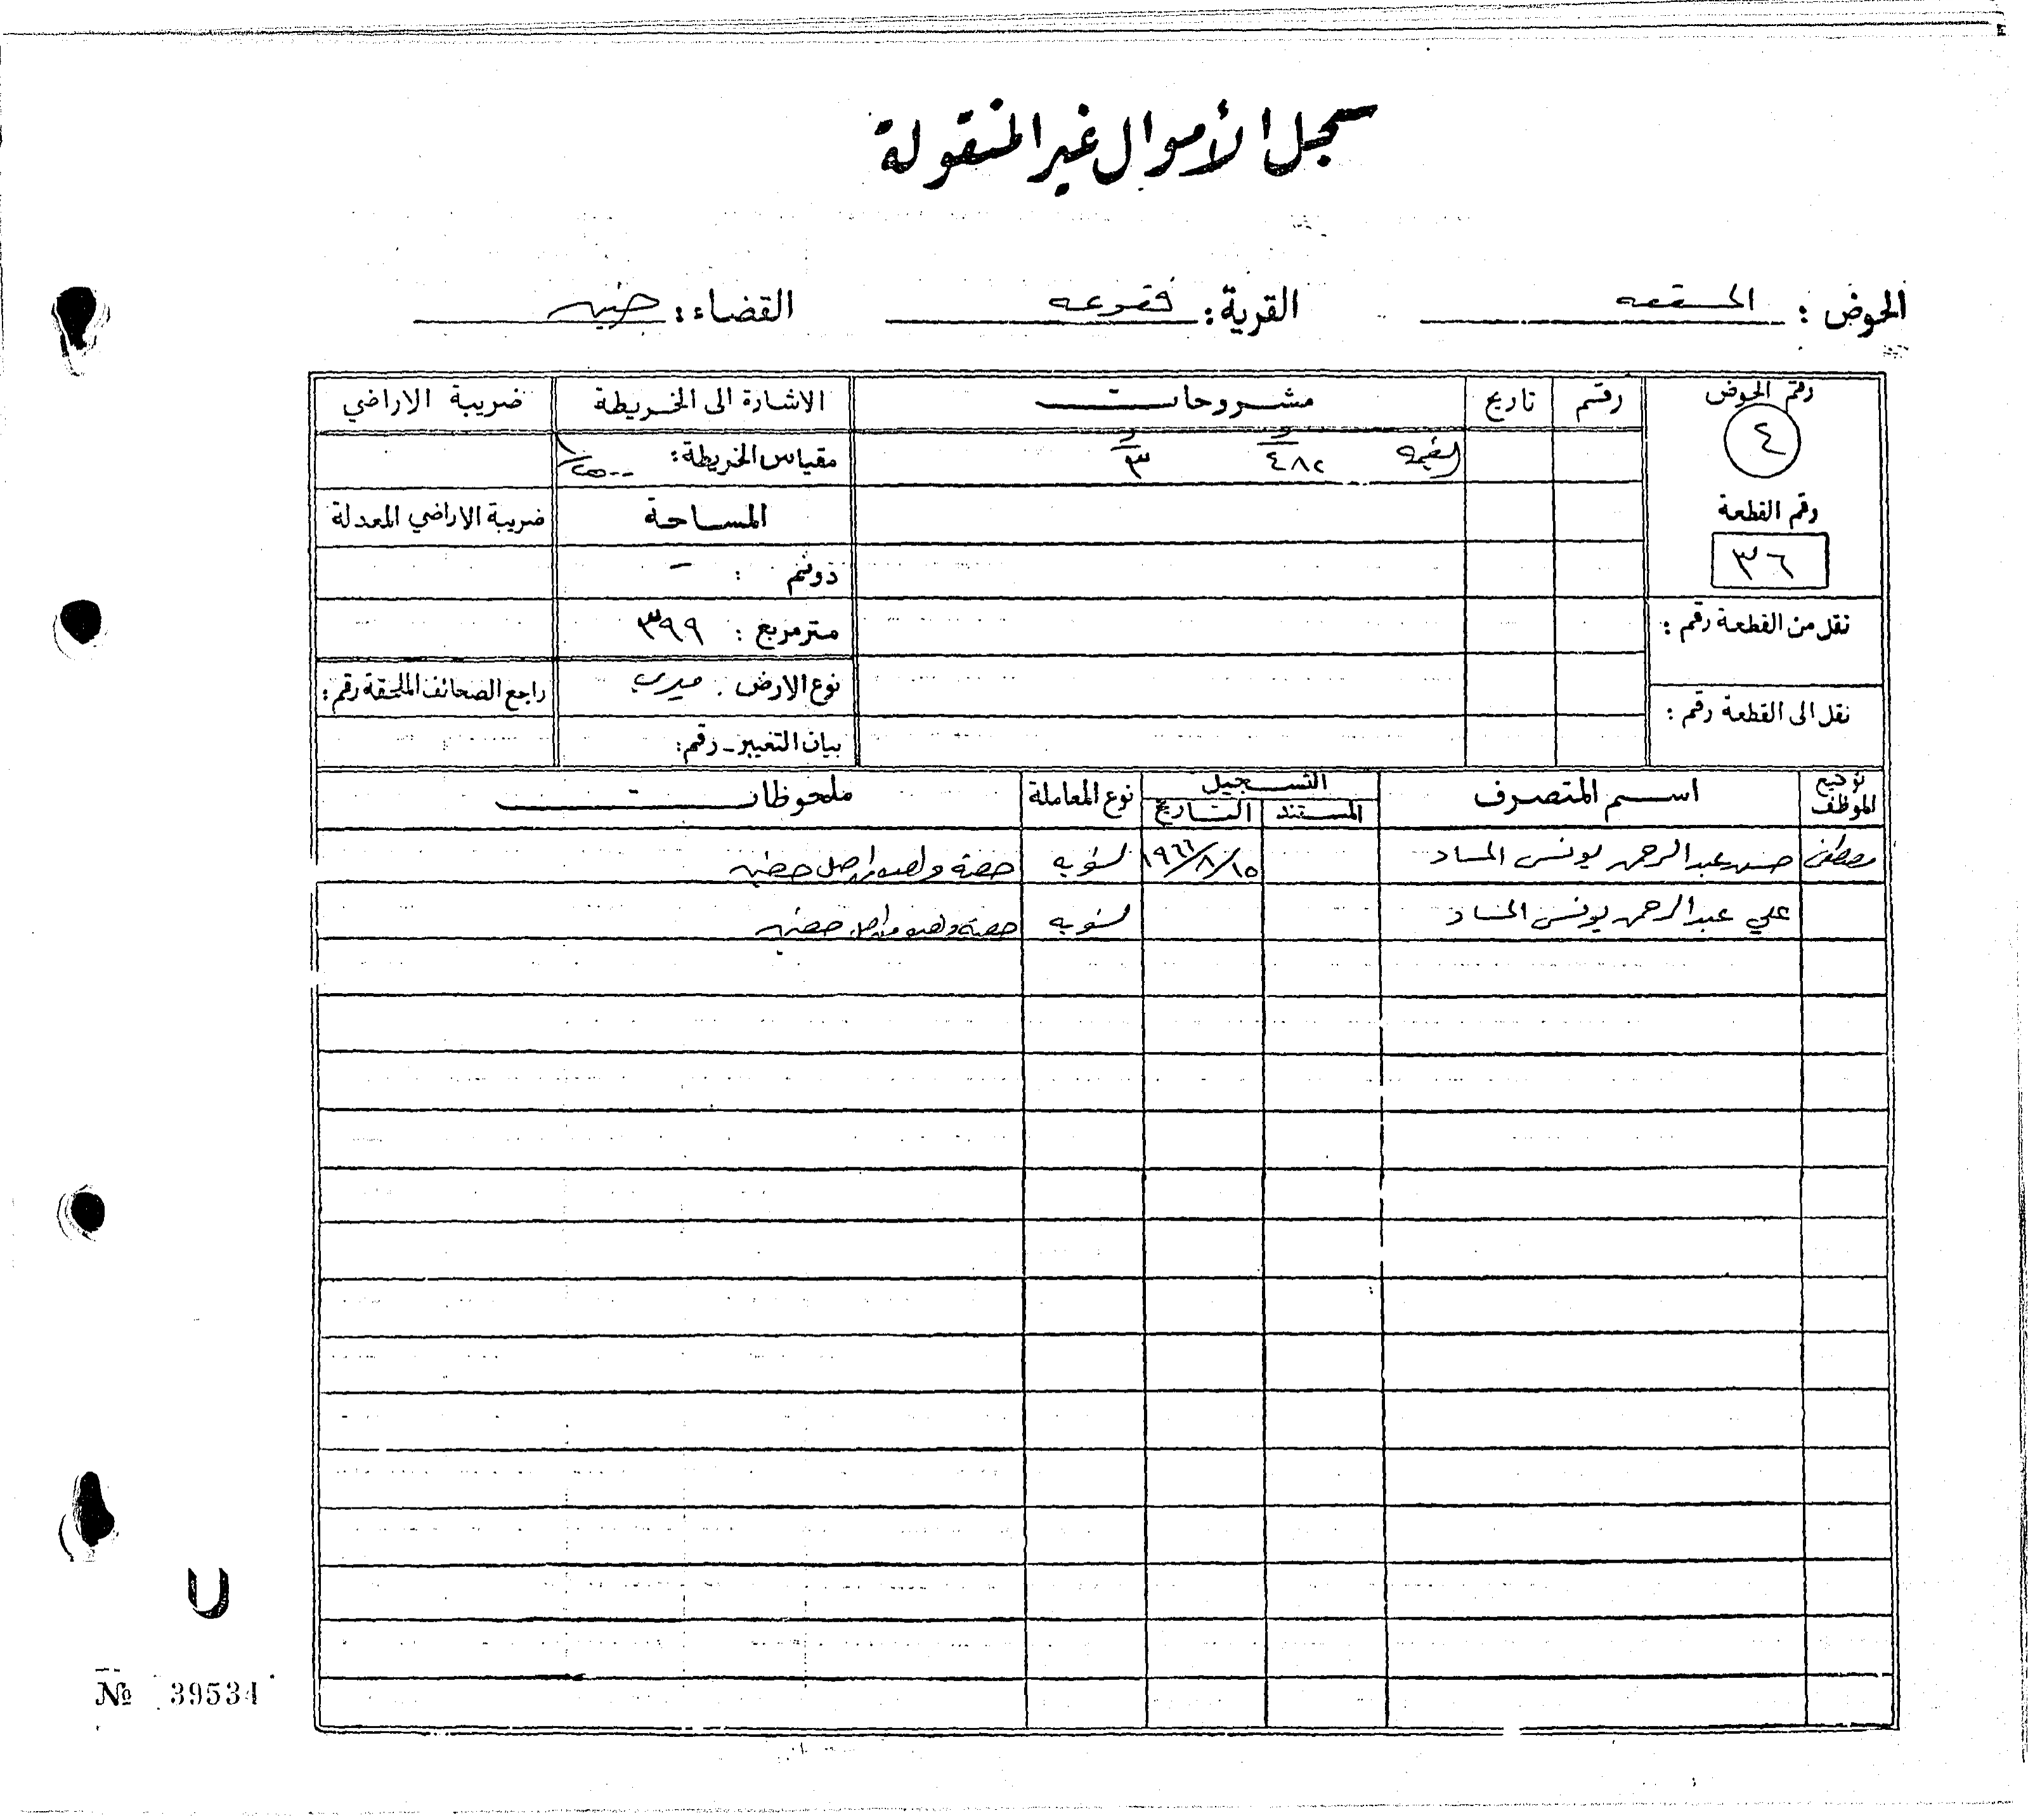 سجل الأموال غير المنقولة
الحوض : القرية : فقوعه القضاء : جنين
رقم الحوض رقم تاريخ مشروحات الاشارة الى الخريطة ضريبة الاراضي
٤
القيمه ٤٨٢ ٣ مقياس الخريطة : ١/٢٥٠٠
رقم القطعة المساحة ضريبة الاراضي المعدلة
٣٦ دونم : -
نقل من القطعة رقم : متر مربع : ٣٩٩
نوع الارض . ميري راجع الصحائف الملحقة رقم :
نقل الى القطعة رقم :
بيان التغيير - رقم :
توقيع الموظف اسم المتصرف التسجيل نوع المعاملة ملحوظات
المستند التاريخ
مصطفى حسن عبد الرحمن يونس المساد ١٩٦٦/٨/١٥ تسويه حصة واحده من اصل حصتين
علي عبد الرحمن يونس المساد تسويه حصة واحده من اصل حصتين
№ 39534